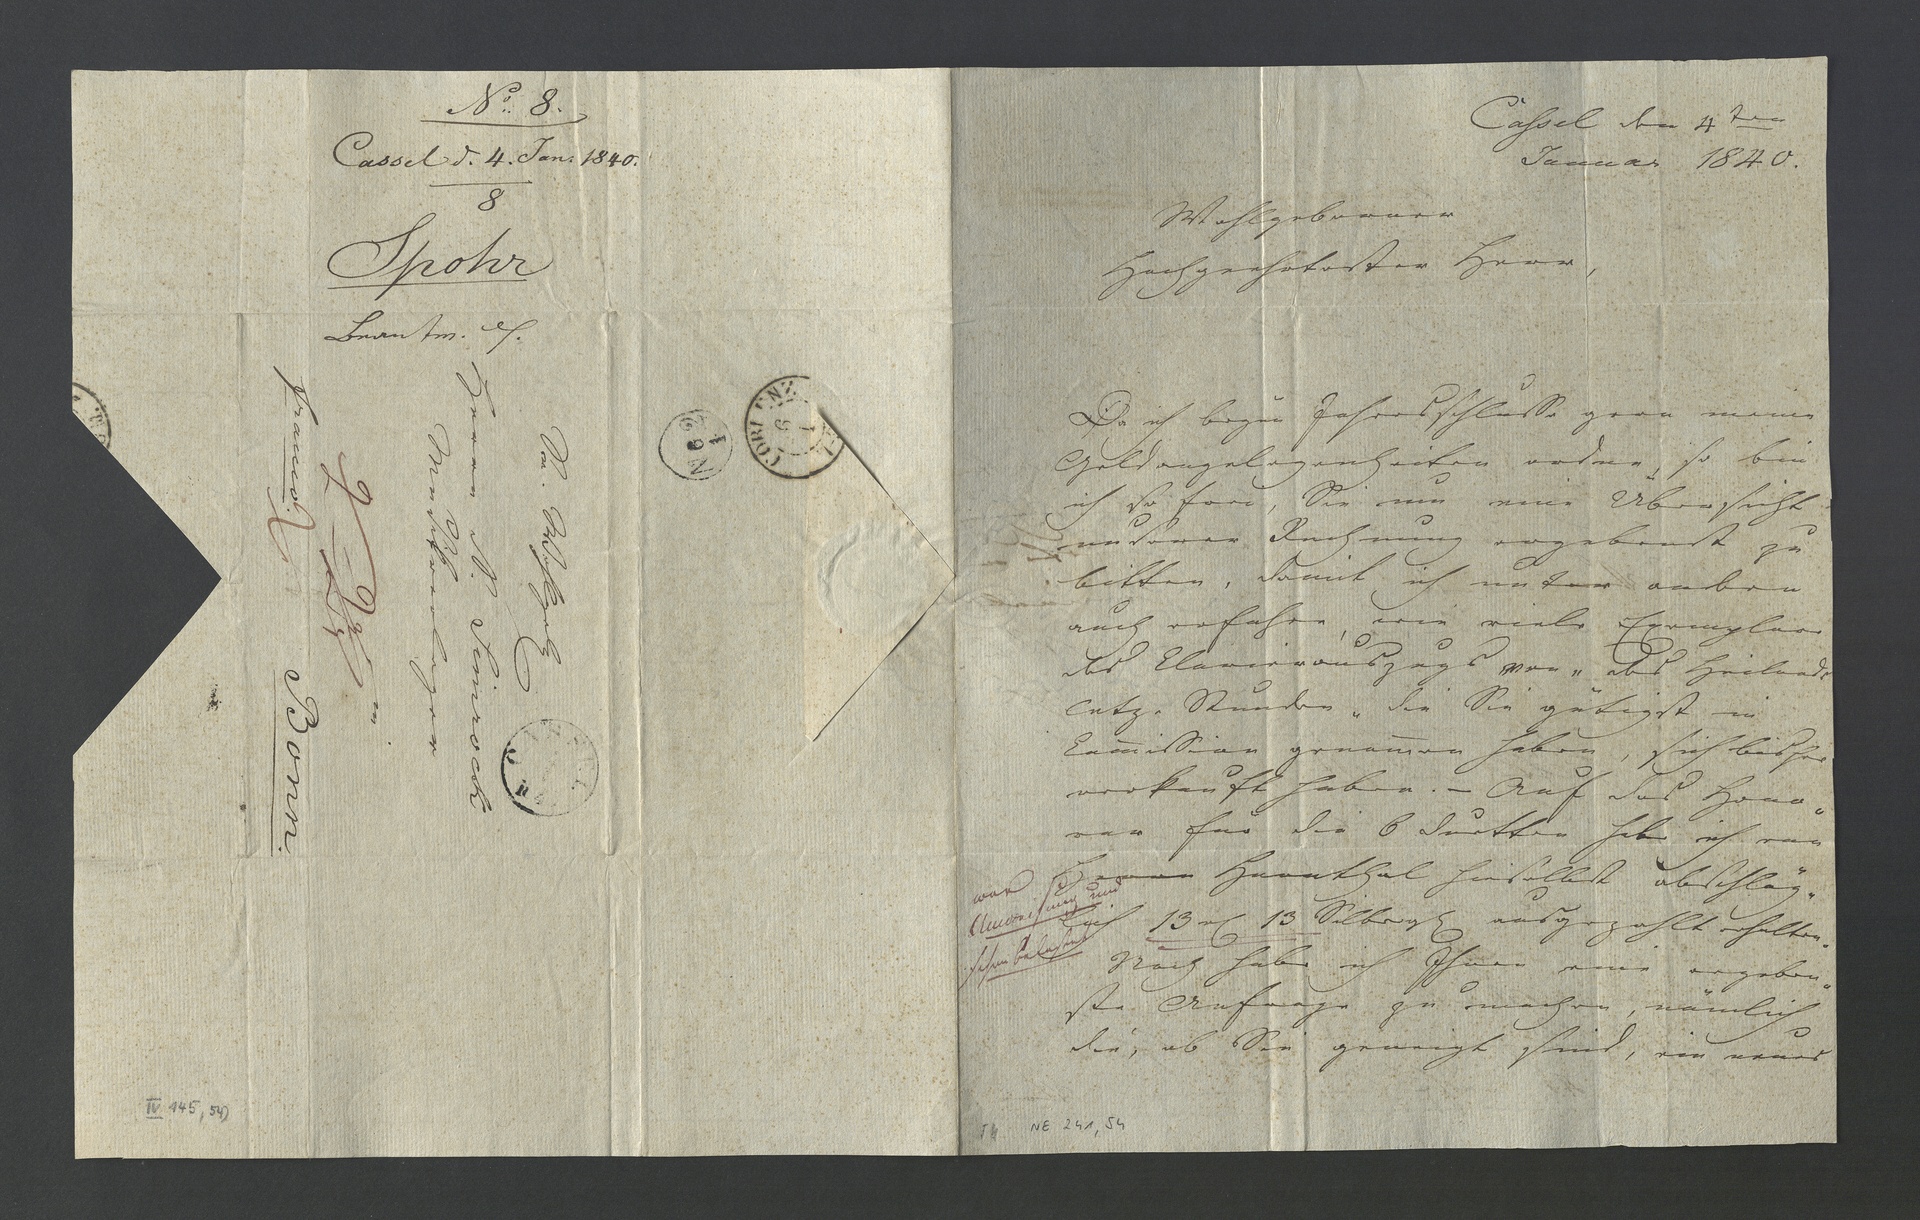 No. 8.
Cassel d. 4. Jan. 1840.
8
Spohr
Beantw.
Sr. Wohlgeb.
Herrn N. Simrock
Musikverleger
in
Bonn.
franco.
COBLENZ
6
1
N62
1
CASSEL
IV 145, 54)
Cassel den 4ten
Januar 1840.
Wohlgeborner
Hochgeehrtester Herr,
Da ich beym Jahresschlusse gern meine
Geldangelegenheiten ordne, so bin
ich so frei, Sie um eine Übersicht
unserer Rechnung ergebenst zu
bitten, damit ich unter andern
auch erfahre, wie viele Exemplare
des Clavierauszugs von „des Heilands
letzte Stunden„ die Sie gütigst in
Commission genommen haben, sich bisher
verkauft haben. – Auf das Hono-
rar für die 6 Duetten habe ich von
Herrn Hornthal hieselbst abschläg-
lich 13 rh 13 Silbergr ausgezahlt erhalten.
Noch habe ich Ihnen eine ergeben-
ste Anfrage zu machen, nämlich
die, ob Sie geneigt sind, ein neues
Anweisung und
schon belastet
54 NE 241, 54